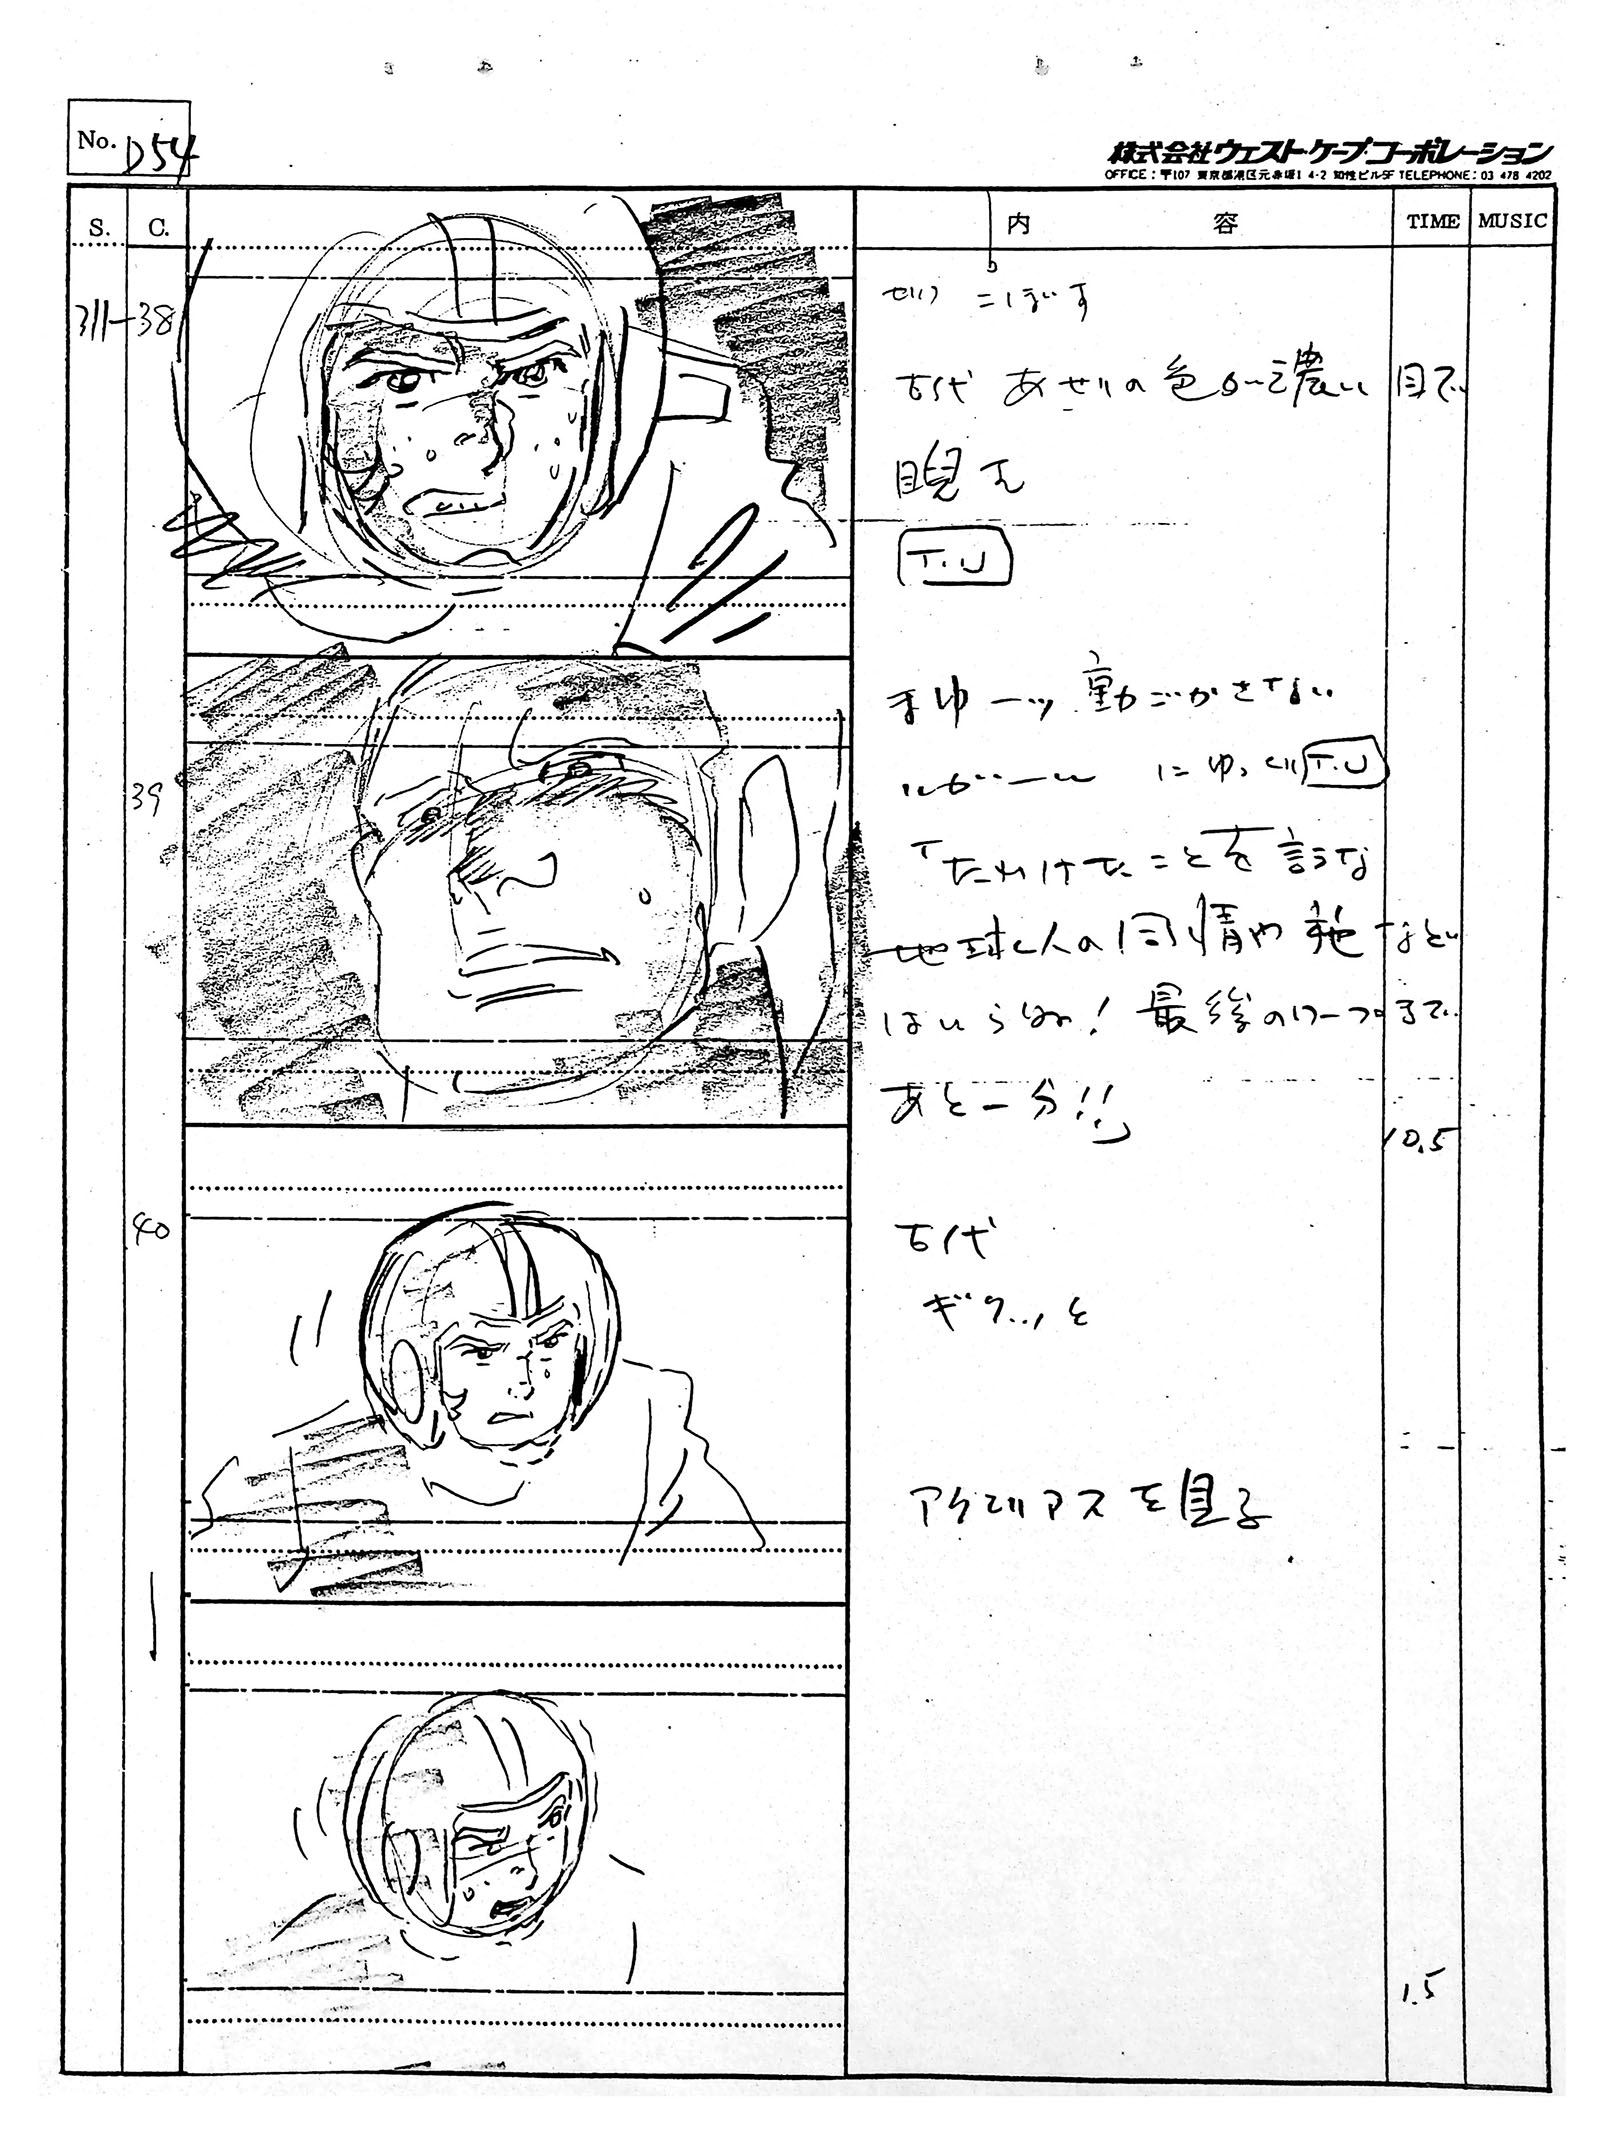 No. D54
株式会社ウェスト・ケープ・コーポレーション
OFFICE：〒107 東京都港区元赤坂1 4-2 知性ビル5F TELEPHONE：03 478 4202
S. C. 内 容 TIME MUSIC
311-38
こぼす
古代 あせりの色が濃い目で
睨む
T.U
39
まゆ一ッ動ごかさない
ルガール にゆっくりT.U
「たわけたことを言うな
地球人の同情や施などい
はいらぬ！最後のワープまで
あと一分!!」
10.5
40
古代
ギクッと
アクエリアスを見る
1.5